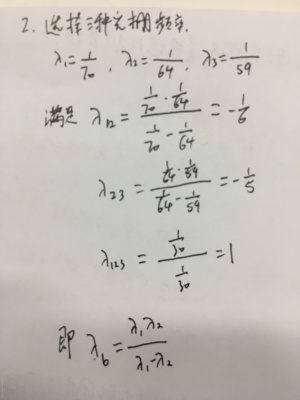 2. 选择三种光栅频率.
λ₁=1/70 , λ₂=1/64 , λ₃=1/59
满足 λ₁₂ = (1/70 · 1/64)/(1/70 - 1/64) = -1/6
λ₂₃ = (1/64 · 1/59)/(1/64 - 1/59) = -1/5
λ₁₂₃ = (1/30)/(1/30) = 1
即 λb = λ₁λ₂/(λ₁-λ₂)